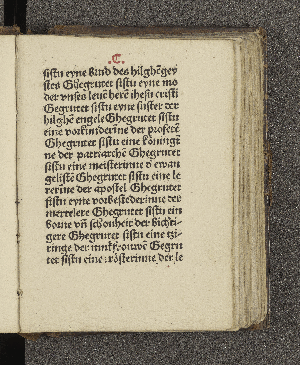 .C.
sistu eyne kind des hilghē gey
stes Ghegrutet sistu eyne mo
der vnses leuē herē ihesu cristi
Gegrutet sistu eyne suster der
hilghē engele Ghegrutet sistu
eine vorkunderinne der profetē
Ghegrutet sistu eine koningī
ne der patriarchē Ghegrutet
sistu eine meisterinne d' ewan
gelistē Ghegrutet sistu eine le
rerine der apostel Ghegrutet
sistu eyne vorbestederinne der
mertelere Ghegrutet sistu ein
borne vñ schonheit der bichti-
gere Ghegrutet sistu eine tzi
ringe der iunkfrouwē Gegru
tet sistu eine trösterinne der le